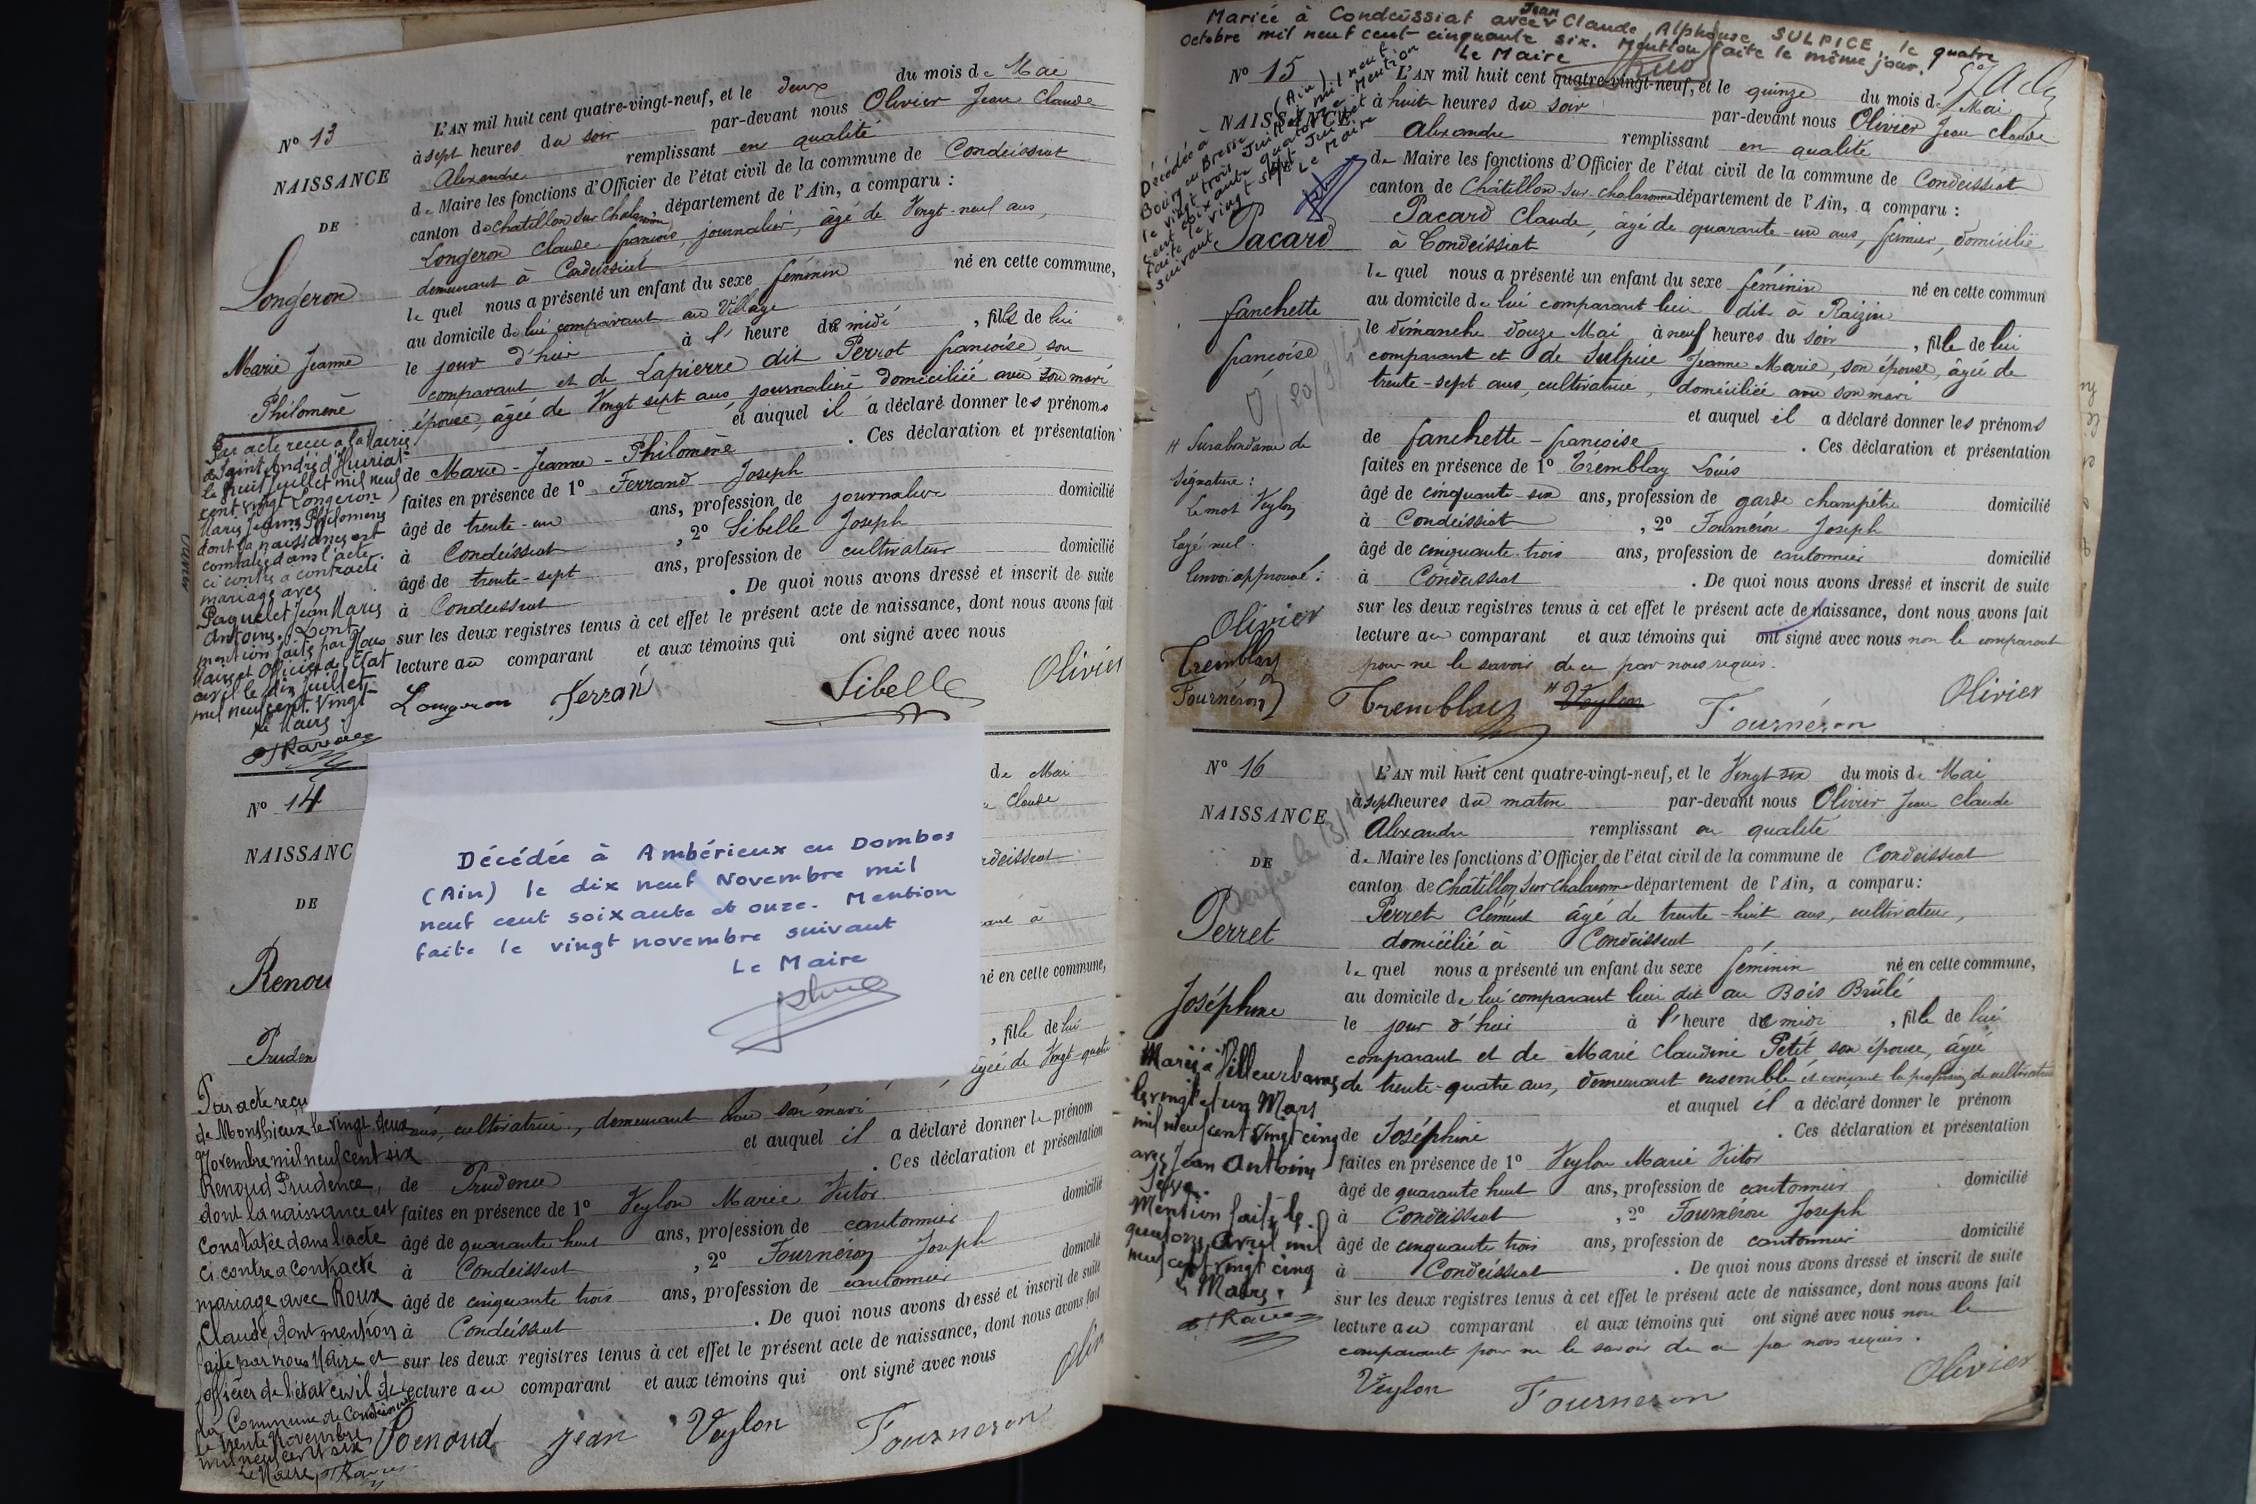 Nº 13
NAISSANCE
DE
Longeron
Marie Jeanne
Philomène
L'AN mil huit cent quatre-vingt-neuf, et le deux du mois de Mai
à sept heures du soir par-devant nous Olivier Jean Claude
Alexandre remplissant en qualité
de Maire les fonctions d'Officier de l'état civil de la commune de Condeissiat
canton de Chatillon sur Chalaronne département de l'Ain, a comparu :
Longeron Claude françois, journalier, âgé de Vingt-neuf ans,
demeurant à Condeissiat
le quel nous a présenté un enfant du sexe féminin né en cette commune,
au domicile de lui comparant au Village
le jour d'hui à l'heure de midi , fille de lui
comparant et de Lapierre dit Perrot françoise, son
épouse, âgée de Vingt sept ans journalière domiciliée avec son mari
et auquel il a déclaré donner les prénoms
de Marie-Jeanne-Philomène . Ces déclaration et présentation
faites en présence de 1º Ferrand Joseph
âgé de trente-un ans, profession de journalier domicilié
à Condeissiat , 2º Sibelle Joseph
âgé de trente-sept ans, profession de cultivateur domicilié
à Condeissiat . De quoi nous avons dressé et inscrit de suite
sur les deux registres tenus à cet effet le présent acte de naissance, dont nous avons fait
lecture au comparant et aux témoins qui ont signé avec nous
Longeron Ferran Sibelle Olivier
Par acte reçu à la Mairie
de Saint André d'Huiriat
le huit Juillet mil neuf
cent vingt Longeron
Marie Jeanne Philomène
dont la naissance est
constatée dans l'acte
ci contre a contracté
mariage avec
Paquelet Jean Marie
Antoine. Dont
mention faite par Nous
Maire et Officier de l'Etat
civil le dix Juillet
mil neuf cent vingt
Le Maire
Nº 14
NAISSANC
DE
Renou
Pruden
de Mai
Claude
deissiat
né en cette commune,
, fille de lui
âgée de Vingt-quatre
Décédée à Ambérieux en Dombes
(Ain) le dix neuf Novembre mil
neuf cent soixante et onze. Mention
faite le vingt novembre suivant
Le Maire
ans, cultivatrice, demeurant avec son mari
et auquel il a déclaré donner le prénom
de Prudence . Ces déclaration et présentation
faites en présence de 1º Veylon Marie Victor
âgé de quarante huit ans, profession de cantonnier domicilié
à Condeissiat , 2º Fournéron Joseph
âgé de cinquante trois ans, profession de cantonnier domicilié
à Condeissiat . De quoi nous avons dressé et inscrit de suite
sur les deux registres tenus à cet effet le présent acte de naissance, dont nous avons fait
lecture au comparant et aux témoins qui ont signé avec nous
Renoud jean Veylon Fourneron Oliv
Par acte reçu
de Monthieux le vingt deux
Novembre mil neuf cent six
Renoud Prudence,
dont la naissance est
constatée dans l'acte
ci contre a contracté
mariage avec Roux
Claude, dont mention
faite par nous Maire et
officier de l'état civil de
la Commune de Condeissiat
le trente Novembre
mil neuf cent six
Le Maire
Mariée à Condeissiat avec Jean Claude, Alphonse SULPICE, le quatre
Octobre mil neuf cent cinquante six. Mention faite le même jour.
Le Maire
Nº 15
NAISSANCE
Pacard
fanchette
françoise
Décédée à
Bourg en Bresse (Ain)
le vingt trois Juillet mil neuf
cent soixante quatorze Mention
faite le vingt sept Juillet
suivant Le Maire
L'AN mil huit cent quatre-vingt-neuf, et le quinze du mois de Mai
à huit heures du soir par-devant nous Olivier Jean Claude
Alexandre remplissant en qualité
de Maire les fonctions d'Officier de l'état civil de la commune de Condeissiat
canton de Châtillon-sur-chalaronne département de l'Ain, a comparu :
Pacard Claude, âgé de quarante-un ans, fermier, domicilié
à Condeissiat
le quel nous a présenté un enfant du sexe féminin né en cette commun
au domicile de lui comparant lieu dit à Raizin
le dimanche douze Mai à neuf heures du soir , fille de lui
comparant et de Sulpice Jeanne Marie, son épouse, âgée de
trente-sept ans, cultivatrice, domiciliée avec son mari
et auquel il a déclaré donner les prénoms
de fanchette-françoise . Ces déclaration et présentation
faites en présence de 1º Tremblay Louis
âgé de cinquante-six ans, profession de garde champêtre domicilié
à Condeissiat , 2º Fournéron Joseph
âgé de cinquante-trois ans, profession de cantonnier domicilié
à Condeissiat . De quoi nous avons dressé et inscrit de suite
sur les deux registres tenus à cet effet le présent acte de naissance, dont nous avons fait
lecture au comparant et aux témoins qui ont signé avec nous non le comparant
pour ne le savoir de ce par nous requis.
Tremblay Veylon Fournéron Olivier
Surabondance de
signature :
Le mot Veylon
rayé nul.
Renvoi approuvé.
Olivier
Tremblay
Fournéron
Nº 16
NAISSANCE
DE
Perret
Joséphine
L'AN mil huit cent quatre-vingt-neuf, et le Vingt-six du mois de Mai
à sept heures du matin par-devant nous Olivier Jean Claude
Alexandre remplissant en qualité
de Maire les fonctions d'Officier de l'état civil de la commune de Condeissiat
canton de Châtillon sur Chalaronne département de l'Ain, a comparu:
Perret Clément âgé de trente-huit ans, cultivateur,
domicilié à Condeissiat
le quel nous a présenté un enfant du sexe féminin né en cette commune,
au domicile de lui comparant lieu dit au Bois Brûlé
le jour d'hui à l'heure de midi , fille de lui
comparant et de Marie Claudine Petit son épouse, âgée
de trente-quatre ans, demeurant ensemble et exerçant la profession de cultivateurs
et auquel il a déclaré donner le prénom
de Joséphine . Ces déclaration et présentation
faites en présence de 1º Veylon Marie Victor
âgé de quarante huit ans, profession de cantonnier domicilié
à Condeissiat , 2º Fournéron Joseph
âgé de cinquante trois ans, profession de cantonnier domicilié
à Condeissiat . De quoi nous avons dressé et inscrit de suite
sur les deux registres tenus à cet effet le présent acte de naissance, dont nous avons fait
lecture au comparant et aux témoins qui ont signé avec nous non le
comparant pour ne le savoir de ce par nous requis.
Veylon Fourneron Olivier
Mariée à Villeurbanne
le vingt et un Mars
mil neuf cent vingt cinq
avec Jean Antoine
Mention faite le
quatorze Avril mil
neuf cent vingt cinq
Le Maire